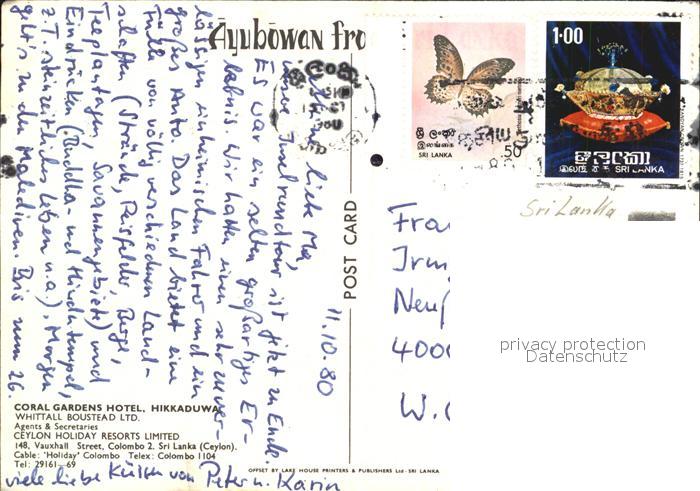 Āyubōwan fro
11.10.80
Liebe Ma,
unsere Inselrundtour ist jetzt zu Ende.
Es war ein selten großartiges Er-
lebnis. Wir hatten einen sehr zuver-
lässigen einheimischen Fahrer und ein
großes Auto. Das Land bietet eine
Fülle von völlig verschiedenen Land-
schaften (Strände, Reisfelder, Berge,
Teeplantagen, Savannengebiete) und
Eindrücken (Buddha- und Hindutempel,
z.T. steinzeitliches Leben u.a.). Morgen
geht's zu den Malediven. Bis zum 26.
viele liebe Küsse von Peter u. Karin
CORAL GARDENS HOTEL, HIKKADUWA
WHITTALL BOUSTEAD LTD.
Agents & Secretaries
CEYLON HOLIDAY RESORTS LIMITED
148, Vauxhall Street, Colombo 2. Sri Lanka (Ceylon).
Cable: 'Holiday' Colombo Telex: Colombo 1104
Tel: 29161-69
OFFSET BY LAKE HOUSE PRINTERS & PUBLISHERS Ltd - SRI LANKA
POST CARD
ශ්‍රී ලංකා
இலங்கை
SRI LANKA
50
1·00
ශ්‍රී ලංකා
இலங்கை
SRI LANKA
Sri Lanka
Fra
Irm
Neuß
4000
W.
privacy protection
Datenschutz